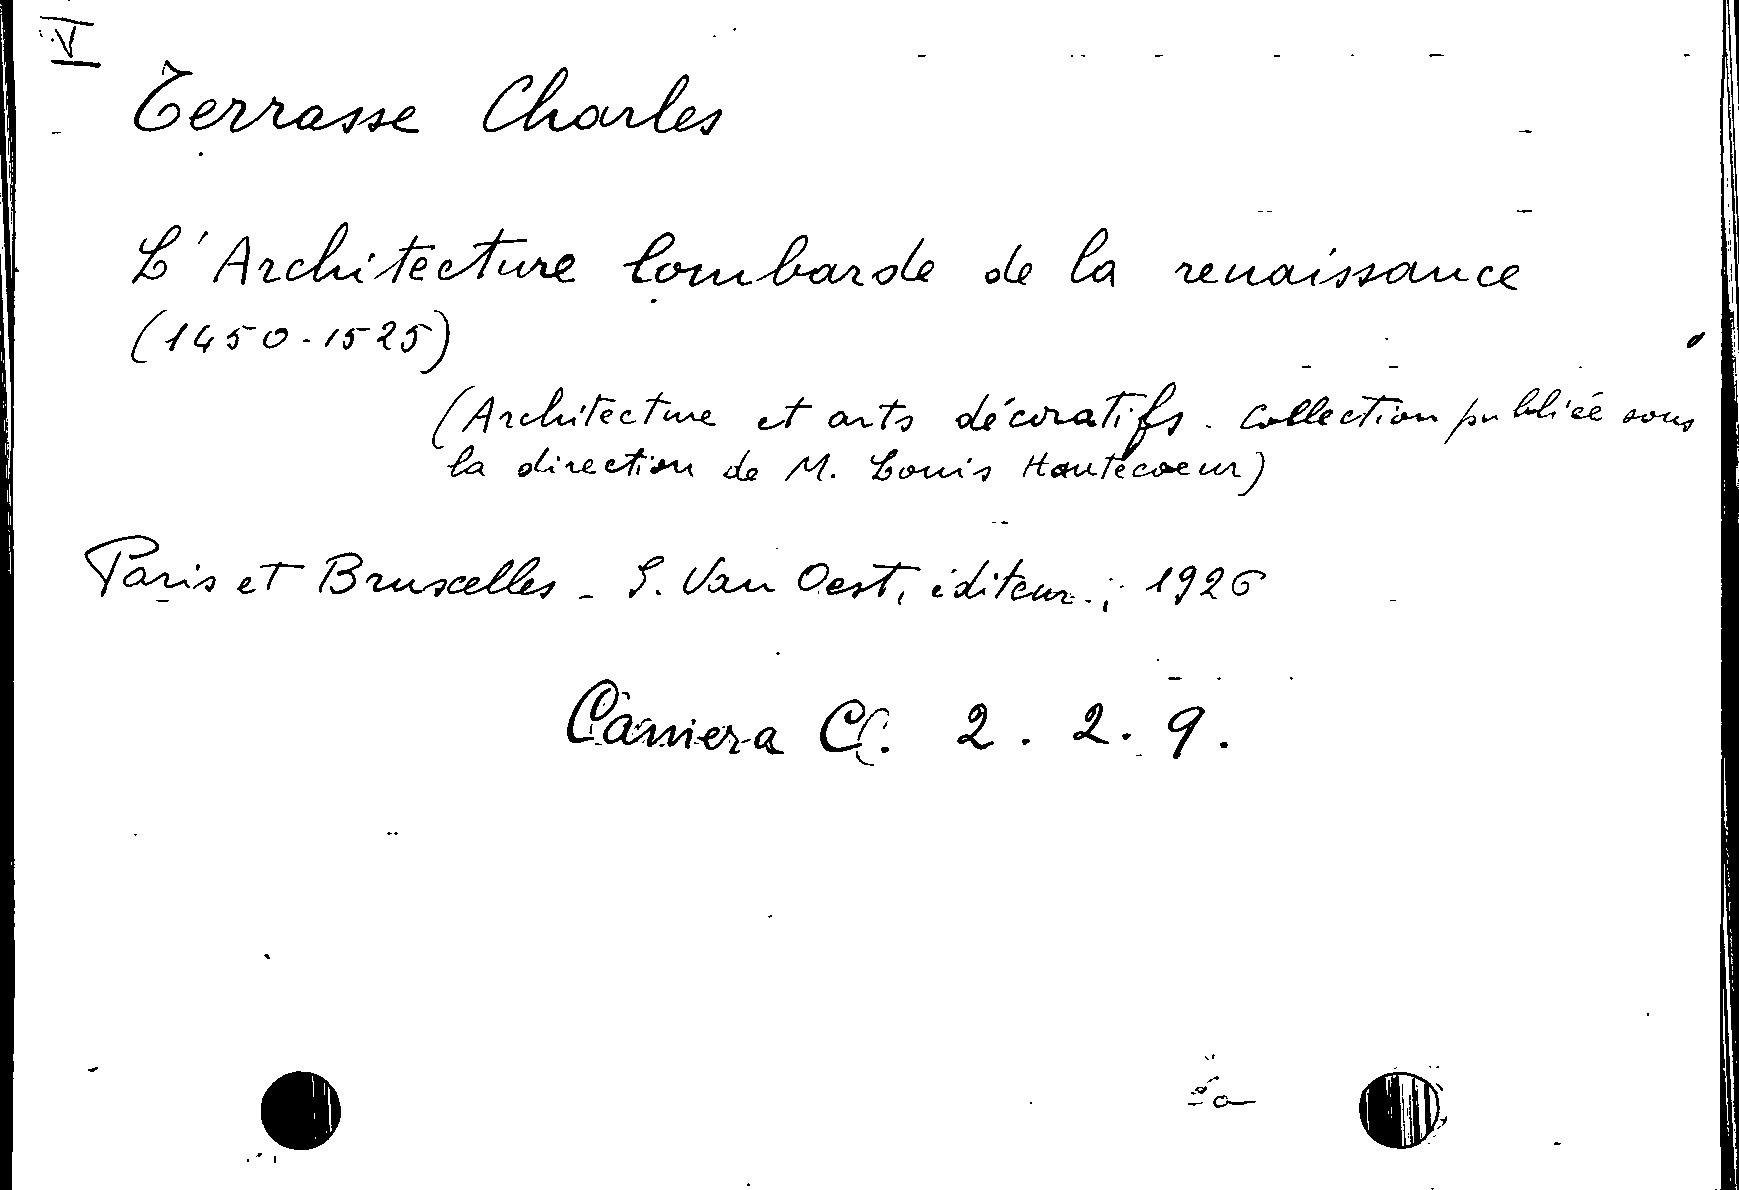 V
Terrasse Charles
L'Architecture lombarde de la renaissance
(1450-1525)
(Architecture et arts décoratifs. Collection publiée sous
la direction de M. Louis Hautecoeur)
Paris et Bruxelles - G. Van Oest, éditeur.; 1926
Camera CC. 2. 2. 9.